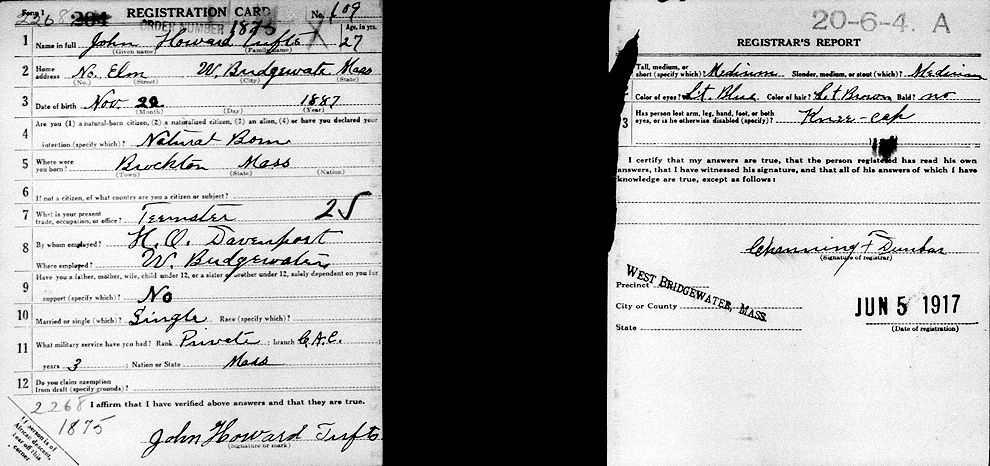 Form 1
2268 204 REGISTRATION CARD No. 109
ORDER NUMBER 1875
Age, in yrs.
1 Name in full John Howard Tufts 27
(Given name) (Family name)
2 Home address No. Elm W. Bridgewater Mass
(No.) (Street) (City) (State)
3 Date of birth Nov 22 1887
(Month) (Day) (Year)
4 Are you (1) a natural-born citizen, (2) a naturalized citizen, (3) an alien, (4) or have you declared your
intention (specify which)? Natural Born
5 Where were you born? Brockton Mass
(Town) (State) (Nation)
6 If not a citizen, of what country are you a citizen or subject?
7 What is your present trade, occupation, or office? Teamster 25
8 By whom employed? H. O. Davenport
Where employed? W. Bridgewater
9 Have you a father, mother, wife, child under 12, or a sister or brother under 12, solely dependent on you for
support (specify which)? No
10 Married or single (which)? Single Race (specify which)?
11 What military service have you had? Rank Private ; branch C.A.C. ;
years 3 ; Nation or State Mass
12 Do you claim exemption from draft (specify grounds)?
I affirm that I have verified above answers and that they are true.
2268
1875
John Howard Tufts
(Signature or mark)
If person is of
African descent,
tear off this
corner.
20-6-4. A
REGISTRAR'S REPORT
Tall, medium, or short (specify which)? Medium Slender, medium, or stout (which)? Medium
Color of eyes? Lt. Blue Color of hair? Lt Brown Bald? no
3 Has person lost arm, leg, hand, foot, or both eyes, or is he otherwise disabled (specify)? Knee-cap
I certify that my answers are true, that the person registered has read his own
answers, that I have witnessed his signature, and that all of his answers of which I have
knowledge are true, except as follows:
Channing F Dunbar
(Signature of registrar)
Precinct
WEST BRIDGEWATER, MASS.
City or County
State
JUN 5 1917
(Date of registration)